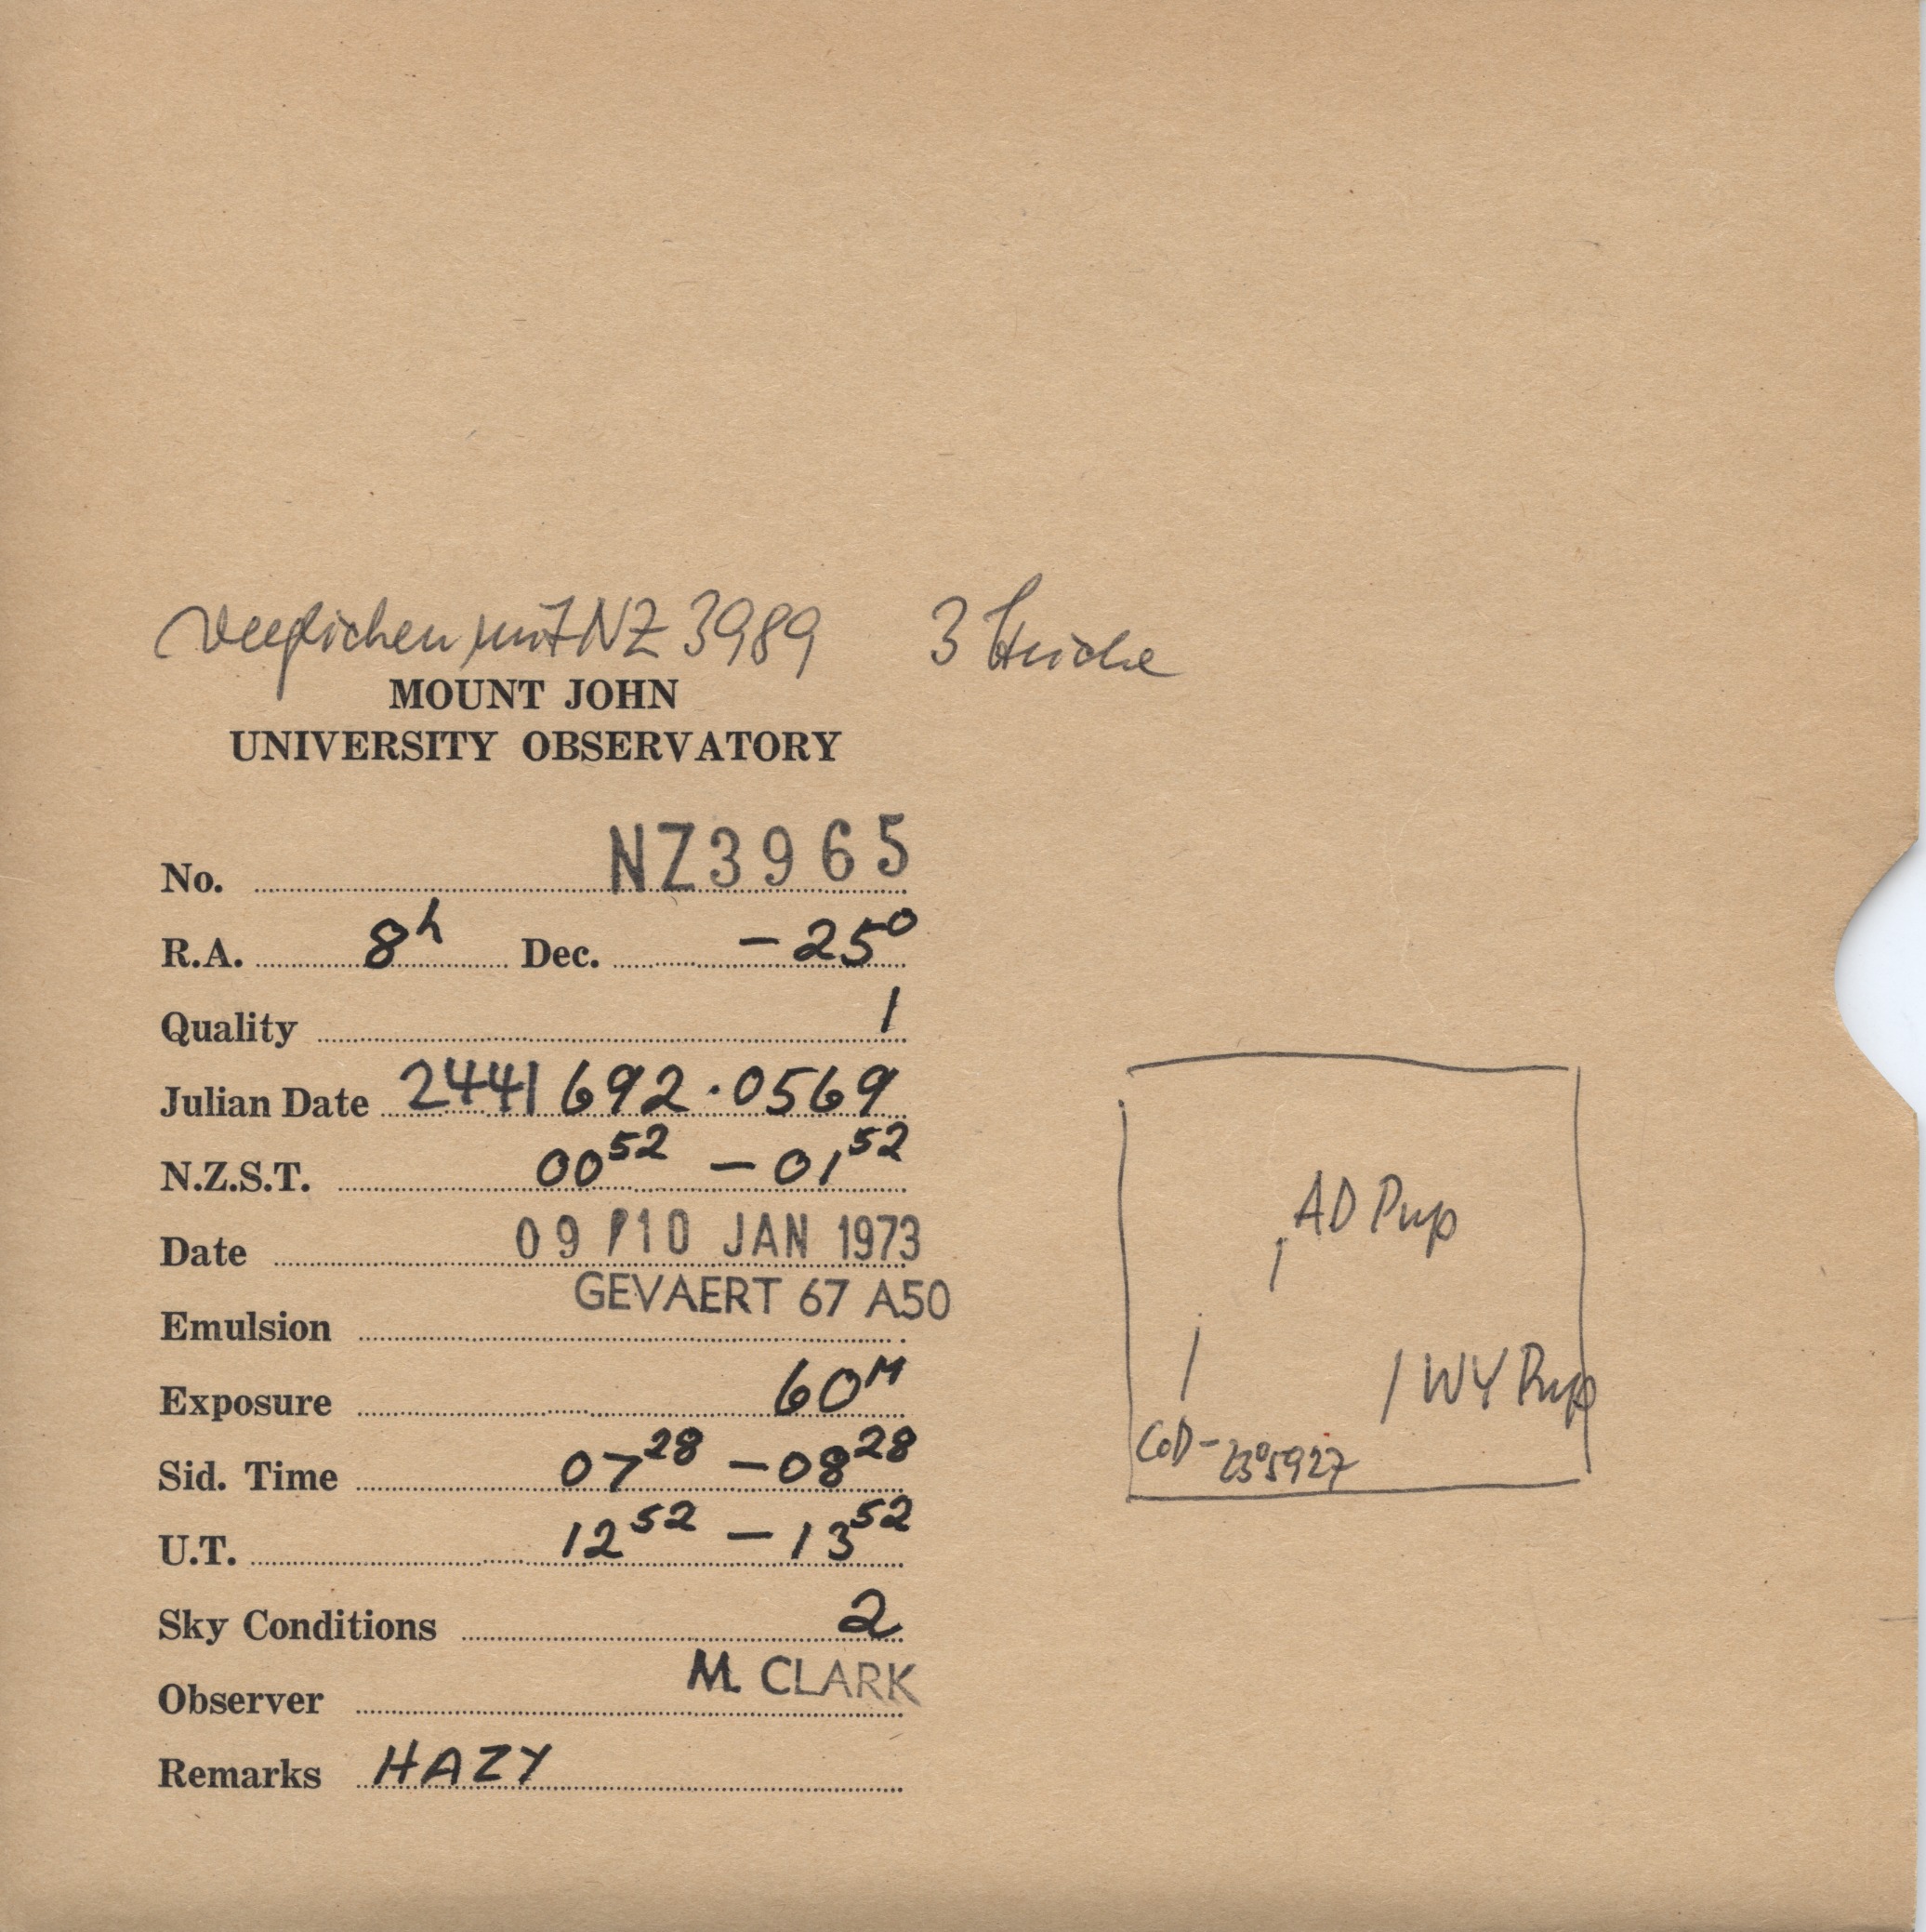 verglichen mit NZ 3989 3 Striche
MOUNT JOHN
UNIVERSITY OBSERVATORY
No. NZ3965
R.A. 8h Dec. -25°
Quality 1
Julian Date 2441692.0569
N.Z.S.T. 00 52 - 01 52
Date 09/10 JAN 1973
GEVAERT 67 A50
Emulsion
Exposure 60M
Sid. Time 07 28 - 08 28
U.T. 12 52 - 13 52
Sky Conditions 2
Observer M. CLARK
Remarks HAZY
AD Pup
WY Pup
CoD -23°5927